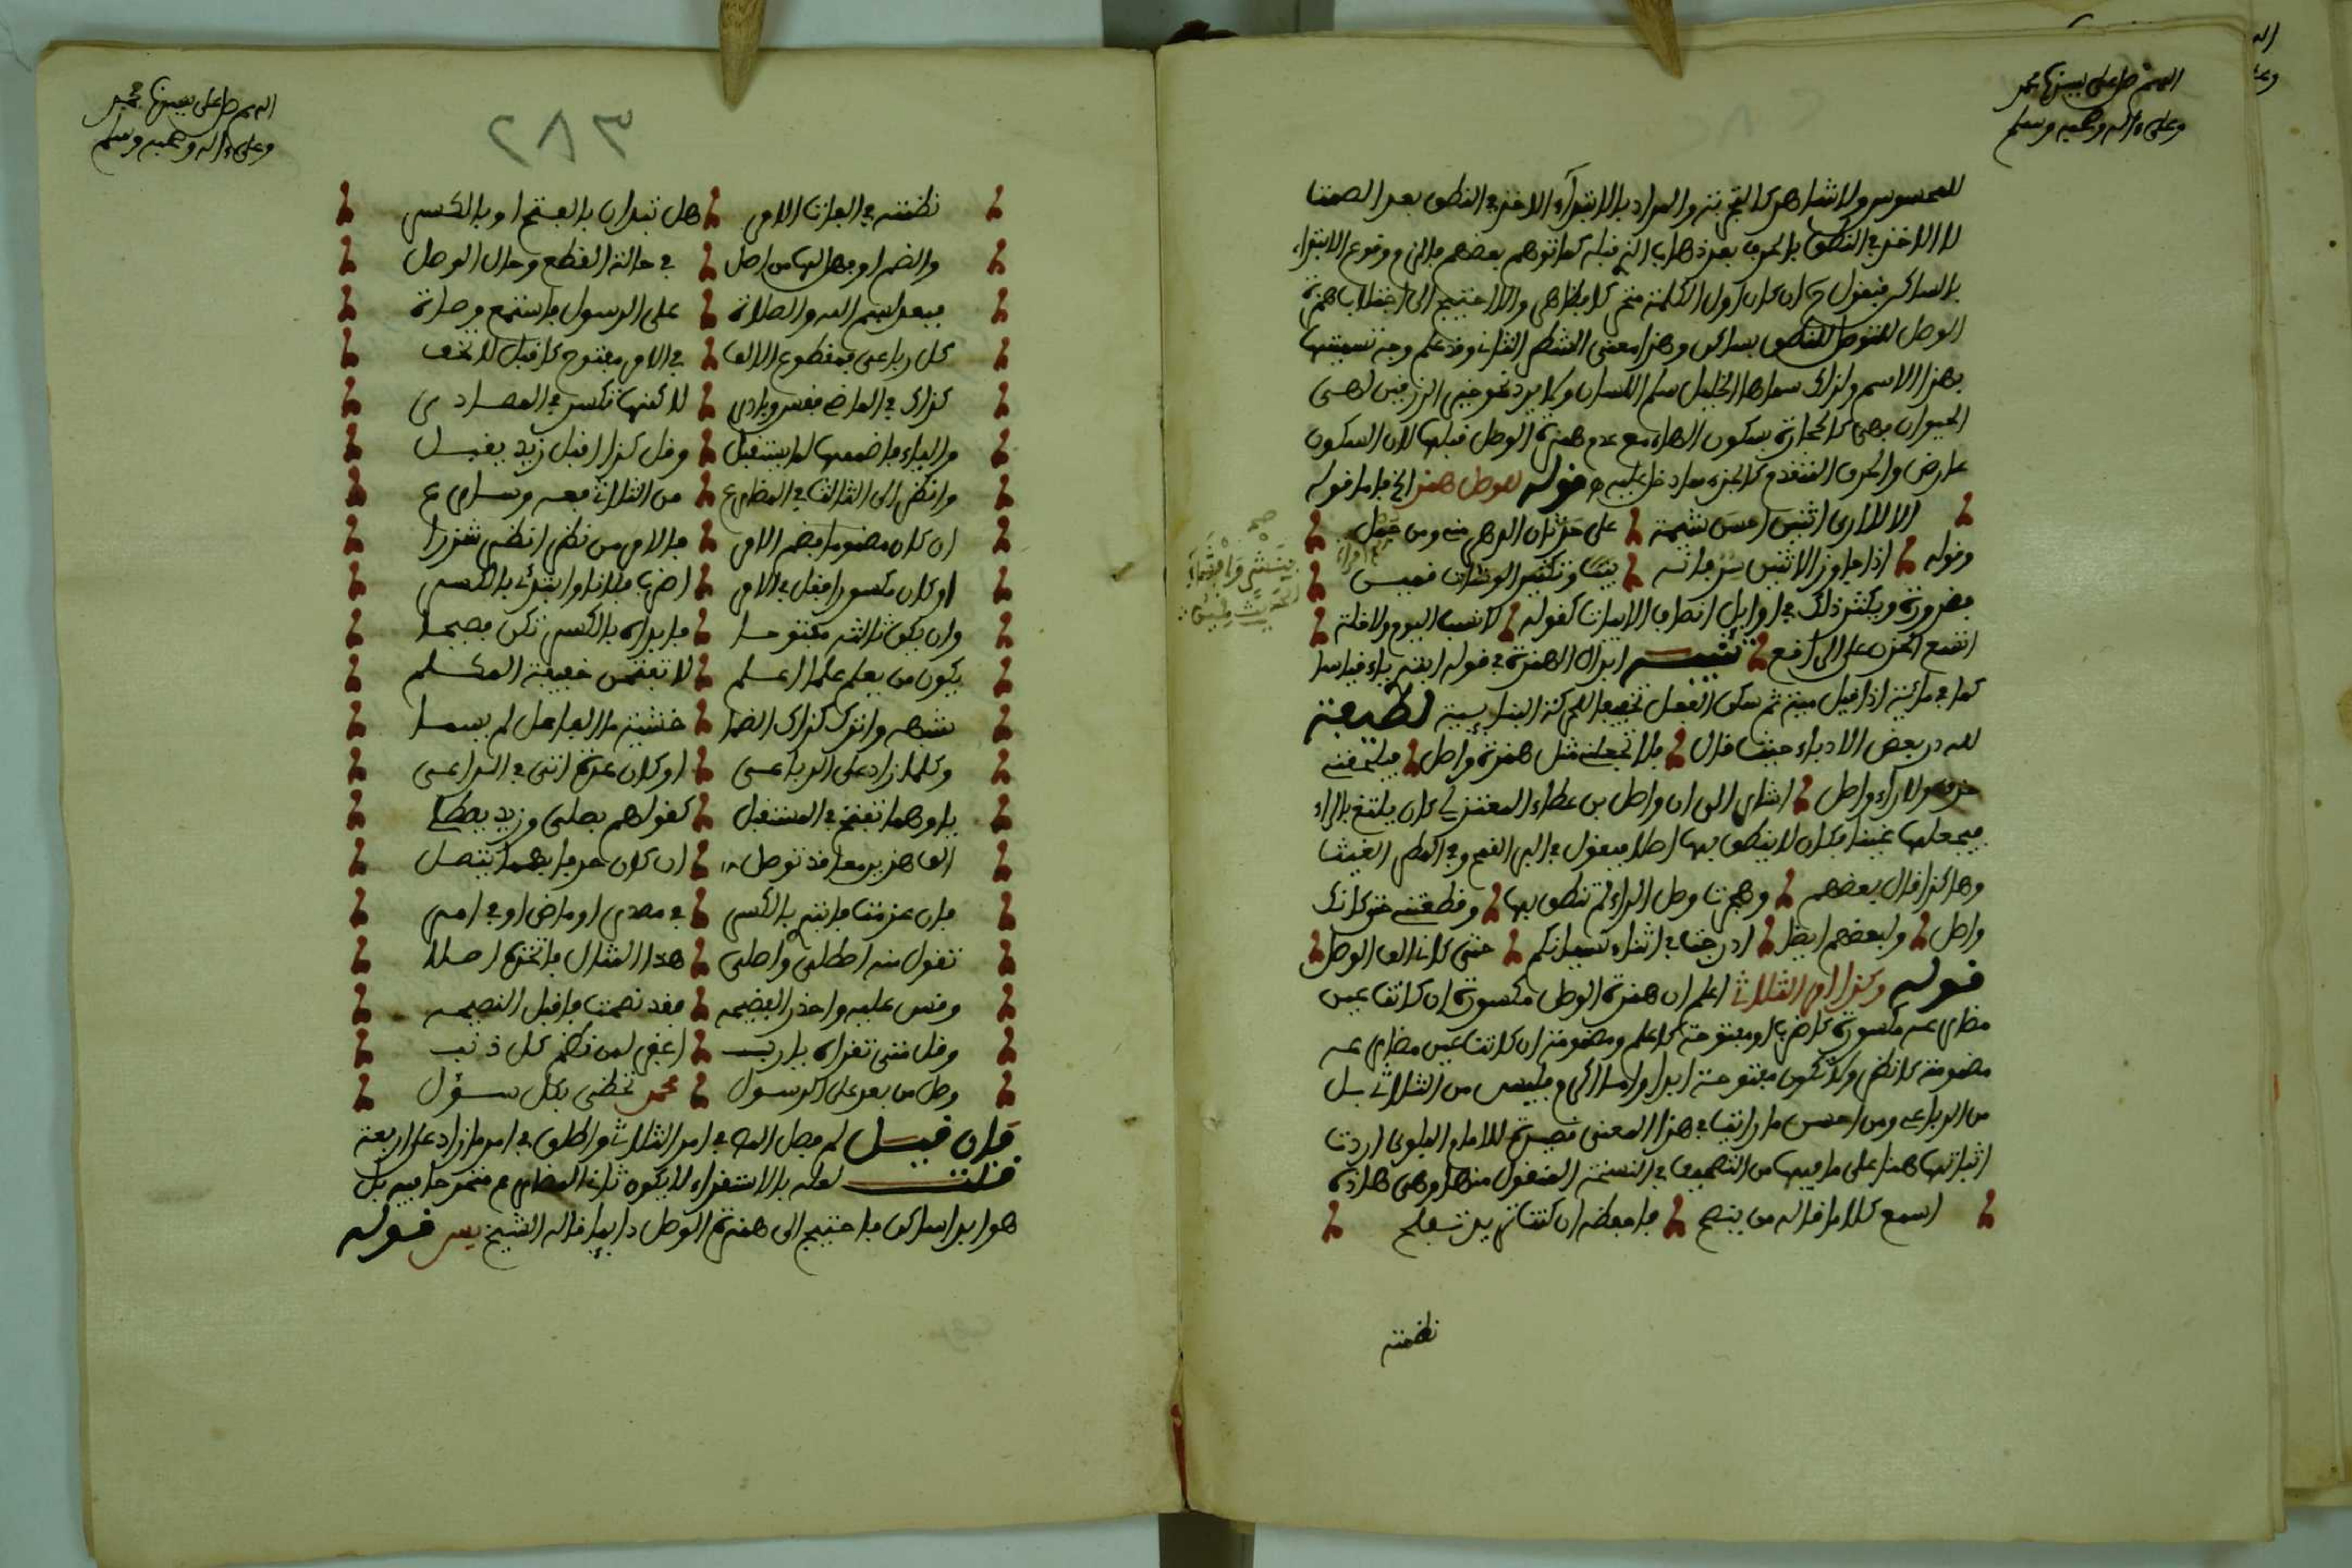 اللهم صل على سيدنا محمد
وعلى ءاله وصحبه وسلم
للمحسوس ولا شاهد كالتجربة والمراد بالابتداء الاخذ في النطق بعد الصمت
لا الاخذ في النطق بالحرف بعد ذهاب الذي قبله كما توهم بعضهم فالزم وقوع الابتداء
بالساكن فنقول ح ان كان اول الكلمة متحركا بظاهر والا احتيج الى اجتلاب همزة
الوصل للتوصل للنطق بساكن وهذا معنى الشطر الثاني وقد علم وجه تسميتها
بهذا الاسم ولذلك سماها الخليل سلم اللسان ولا يرد نحو
الحيوان فهي كالحجارة بسكون الهاء مع عدم همزة الوصل قبلها لان السكون
عارض والحرف المتقدم كالجزء مما دخل عليه قوله للوصل همز الخ فاما قوله
الا لا ارى اثنين احسن شيمة على حدثان الدهر مني ومن جمل
وقوله اذا جاوز الاثنين سر فانه بنث وتكثير الوشاة قمين
فضرورة ويكثر ذلك في اوايل انصاف الابيات كقوله لا نسب اليوم ولا خلة
اتسع الخرق على الراقع تنبيه ابدال الهمزة في قوله ايضه ياء قياسا
كما في مائة اذا قيل مية ثم سكن الفعل تخفيفا للحركة البنايية لطيفة
لله در بعض الادباء حيث قال فلا تجعلني مثل همزة واصل فيلحقني
حذف ولا راء واصل اشار الى ان واصل بن عطاء المعتزلي كان يلثغ بالراء
فيجعلها غينا فكان لا ينطق بها اصلا فيقول في البر القمح وفي المطر الغيث
وهاكذا قال بعضهم وهجرت وصل الراء لم تنطق بها وقطعتني حتى كانك
واصل ولبعضهم ايضا ادرجت في اثناء نسيانكم حتى كاني الف الوصل
قوله وكذا امر الثلاثي اعلم ان همزة الوصل مكسورة ان كانت عين
مضارعه مكسورة كاضرب او مفتوحة كاعلم ومضمومة ان كانت عين مضارعه
مضمومة كانظر ولا تكون مفتوحة ابدا واما اكرم فليس من الثلاثي بل
من الرباعي ومن احسن ما رايت في هذا المعنى قصيدة للامام البلوي اردت
اثباتها هنا على ما فيها من التصحيف في النسخة المنقول منها وهي هاذه
اسمع كلاما قاله من ينصح فاحفظه ان كنت تريد تفلح
نظمته
اللهم صل على سيدنا محمد
وعلى ءاله وصحبه وسلم
٢٨٣
نظمته في الفات الامر هل تبدان بالفتح او بالكسر
والضم او فيها لها من اصل في حالة القطع وحال الوصل
فبعد بسم الله والصلاة على الرسول فاستمع وصاة
كل رباعي فمقطوع الالف في الامر مفتوح كاقبل لا تخف
كذاك في الماضي فقس وبادر لاكنها تكسر في المصادر
والياء فاضممها لما يستقبل وقل كذا اقبل زيد يقبل
وانظر الى الثالث في المضارع من الثلاثي فعه وسارع
ان كان مضموما فضم الامر فالامر من نظر انظر شزرا
او كان مكسورا فقل في الامر اضرب فلانا وابتدئ بالكسر
وان يكن ثالثه مفتوحا فابداه بالكسر تكن فصيحا
يكون من يعلم علما اعلم لا تفتحن خفيفة المكلم
تشبهه واترك كذاك الضما خشية ما الفاعل لم يسما
وكلما زاد على الرباعي او كان عدة اتى في الداعي
ياوهما تفتح في المستقبل كقولهم يصلي وزيد يصطلي
الف هذين معا قد توصل ان كان حرف بهما يتصل
فان عزمت فاته بالكسر في مصدر او ماض او في امر
تقول منه اصطلى واصلى هذا المثال فاتخذه اصلا
وقس عليه واحذر الفضيحه فقد نصحت فاقبل النصيحه
وقل متى تقراه يارب اغفر لمن نظم كل ذنب
وصل من بعد على الرسول محمد تحظى بكل سؤل
فان قيل لم فصل المص في امر الثلاثي واطلق في امر ما زاد على اربعة
قلت لعله بالاستقراء لا يكون ثاني المضارع متحركا فيه بل
هو ابدا ساكن فاحتيج الى همزة الوصل دايما قاله الشيخ يس قوله